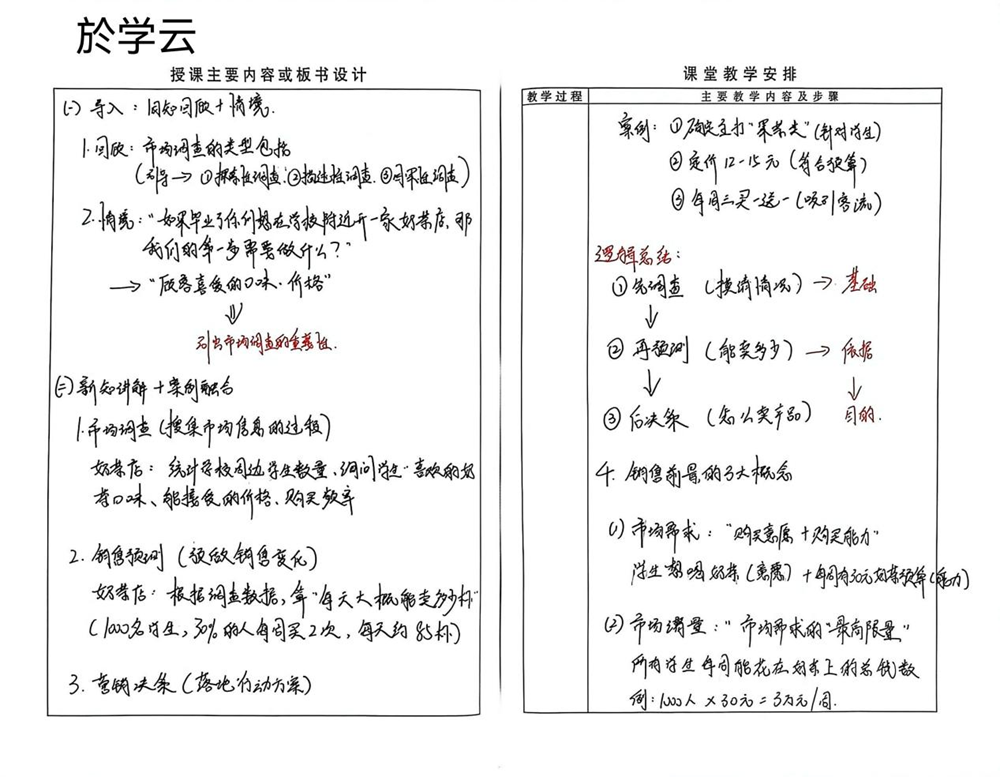 於学云
授课主要内容或板书设计
(一) 导入：旧知回顾+情境.
1. 回顾：市场调查的类型包括
(引导→ ①探索性调查.②描述性调查.③因果性调查)
2. 情境："如果毕业了你们想在学校附近开一家奶茶店，那
我们的第一步需要做什么？"
→ "顾客喜爱的口味.价格"
⇓
引出市场调查的重要性.
(二) 新知讲解+案例融合
1. 市场调查 (搜集市场信息的过程)
奶茶店：统计学校周边学生数量、询问学生"喜欢的奶
茶口味、能接受的价格、购买频率
2. 销售预测 (预做销售变化)
奶茶店：根据调查数据，算"每天大概能卖多少杯"
(1000名学生，30%的人每周买2次，每天约85杯)
3. 营销决策 (落地行动方案)
课堂教学安排
教学过程
主要教学内容及步骤
案例：①确定主打"果茶类"(针对学生)
②定价12-15元 (符合预算)
③每周三买一送一 (吸引客流)
逻辑总结：
①先调查 (摸清情况) → 基础
↓
②再预测 (能卖多少) → 依据
↓ ↓
③后决策 (怎么卖产品) 目的.
4. 销售前景的3大概念
(1) 市场需求："购买意愿+购买能力"
学生想喝奶茶(意愿)+每周有30元奶茶预算(能力)
(2) 市场潜量："市场需求的"最高限量"
所有学生每周能花在奶茶上的总钱数
例：1000人×30元=3万元/周.